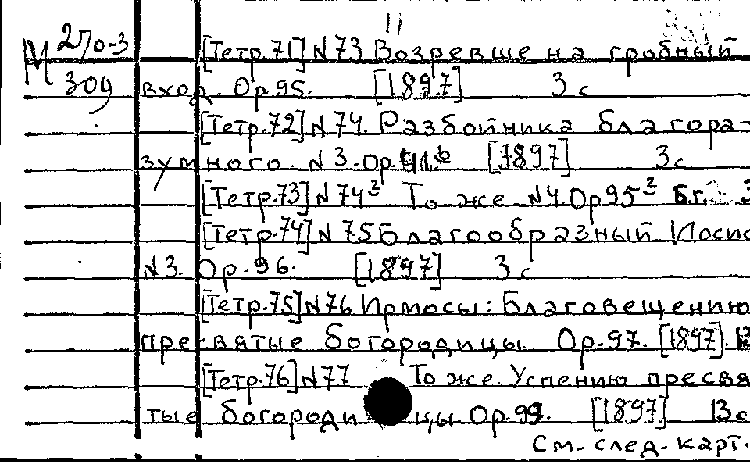 11
М 270-3 [Тетр.71] N73 Возревше на гробный
309 вход. Ор.95. [1897] 3 с
[Тетр.72] N74. Разбойника благора-
зумного. N3. Ор. [1897] 3с
[Тетр.73] N74² То же N4. Ор95² Б.г.
[Тетр.74] N75 Благообразный Иоси
N3. Ор.96. [1897] 3 с
[Тетр.75] N76 Ирмосы: благовещению
пресвятые богородицы. Ор.97. [1897]
[Тетр.76] N77 То же. Успению пресвя
тые богородицы. Ор. [1897] 13с
См. след. карт.